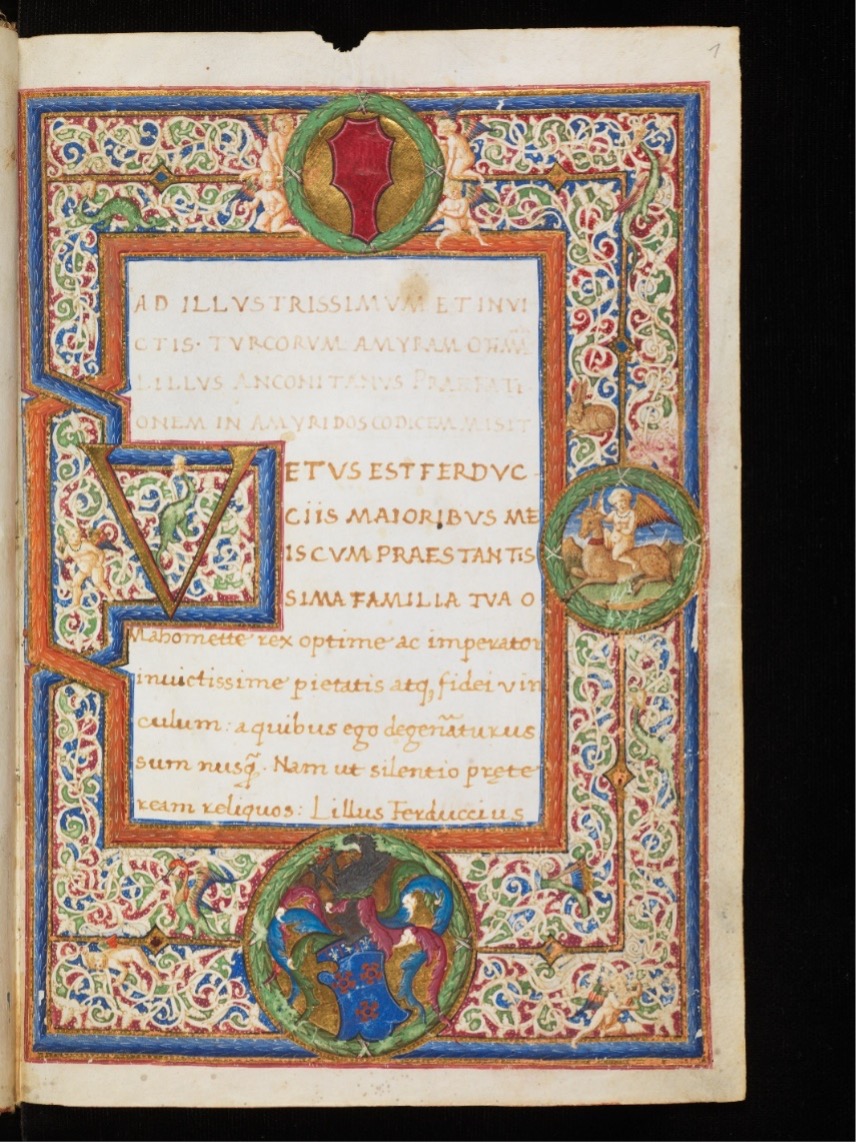 1
AD ILLVSTRISSIMVM ET INVI
CTIS· TVRCORVM AMYRAM
LILLVS ANCONITANVS PRAEFATI
ONEM IN AMYRIDOS CODICEM MISIT
VETVS EST FERDVC
CIIS MAIORIBVS ME
IS CVM PRAESTANTIS
SIMA FAMILIA TVA O
Mahomette rex optime ac imperator
inuictissime pietatis atq, fidei vin
culum: a quibus ego degeñaturus
sum nusq̃. Nam ut silentio pręte
ream reliquos: Lillus Ferduccius